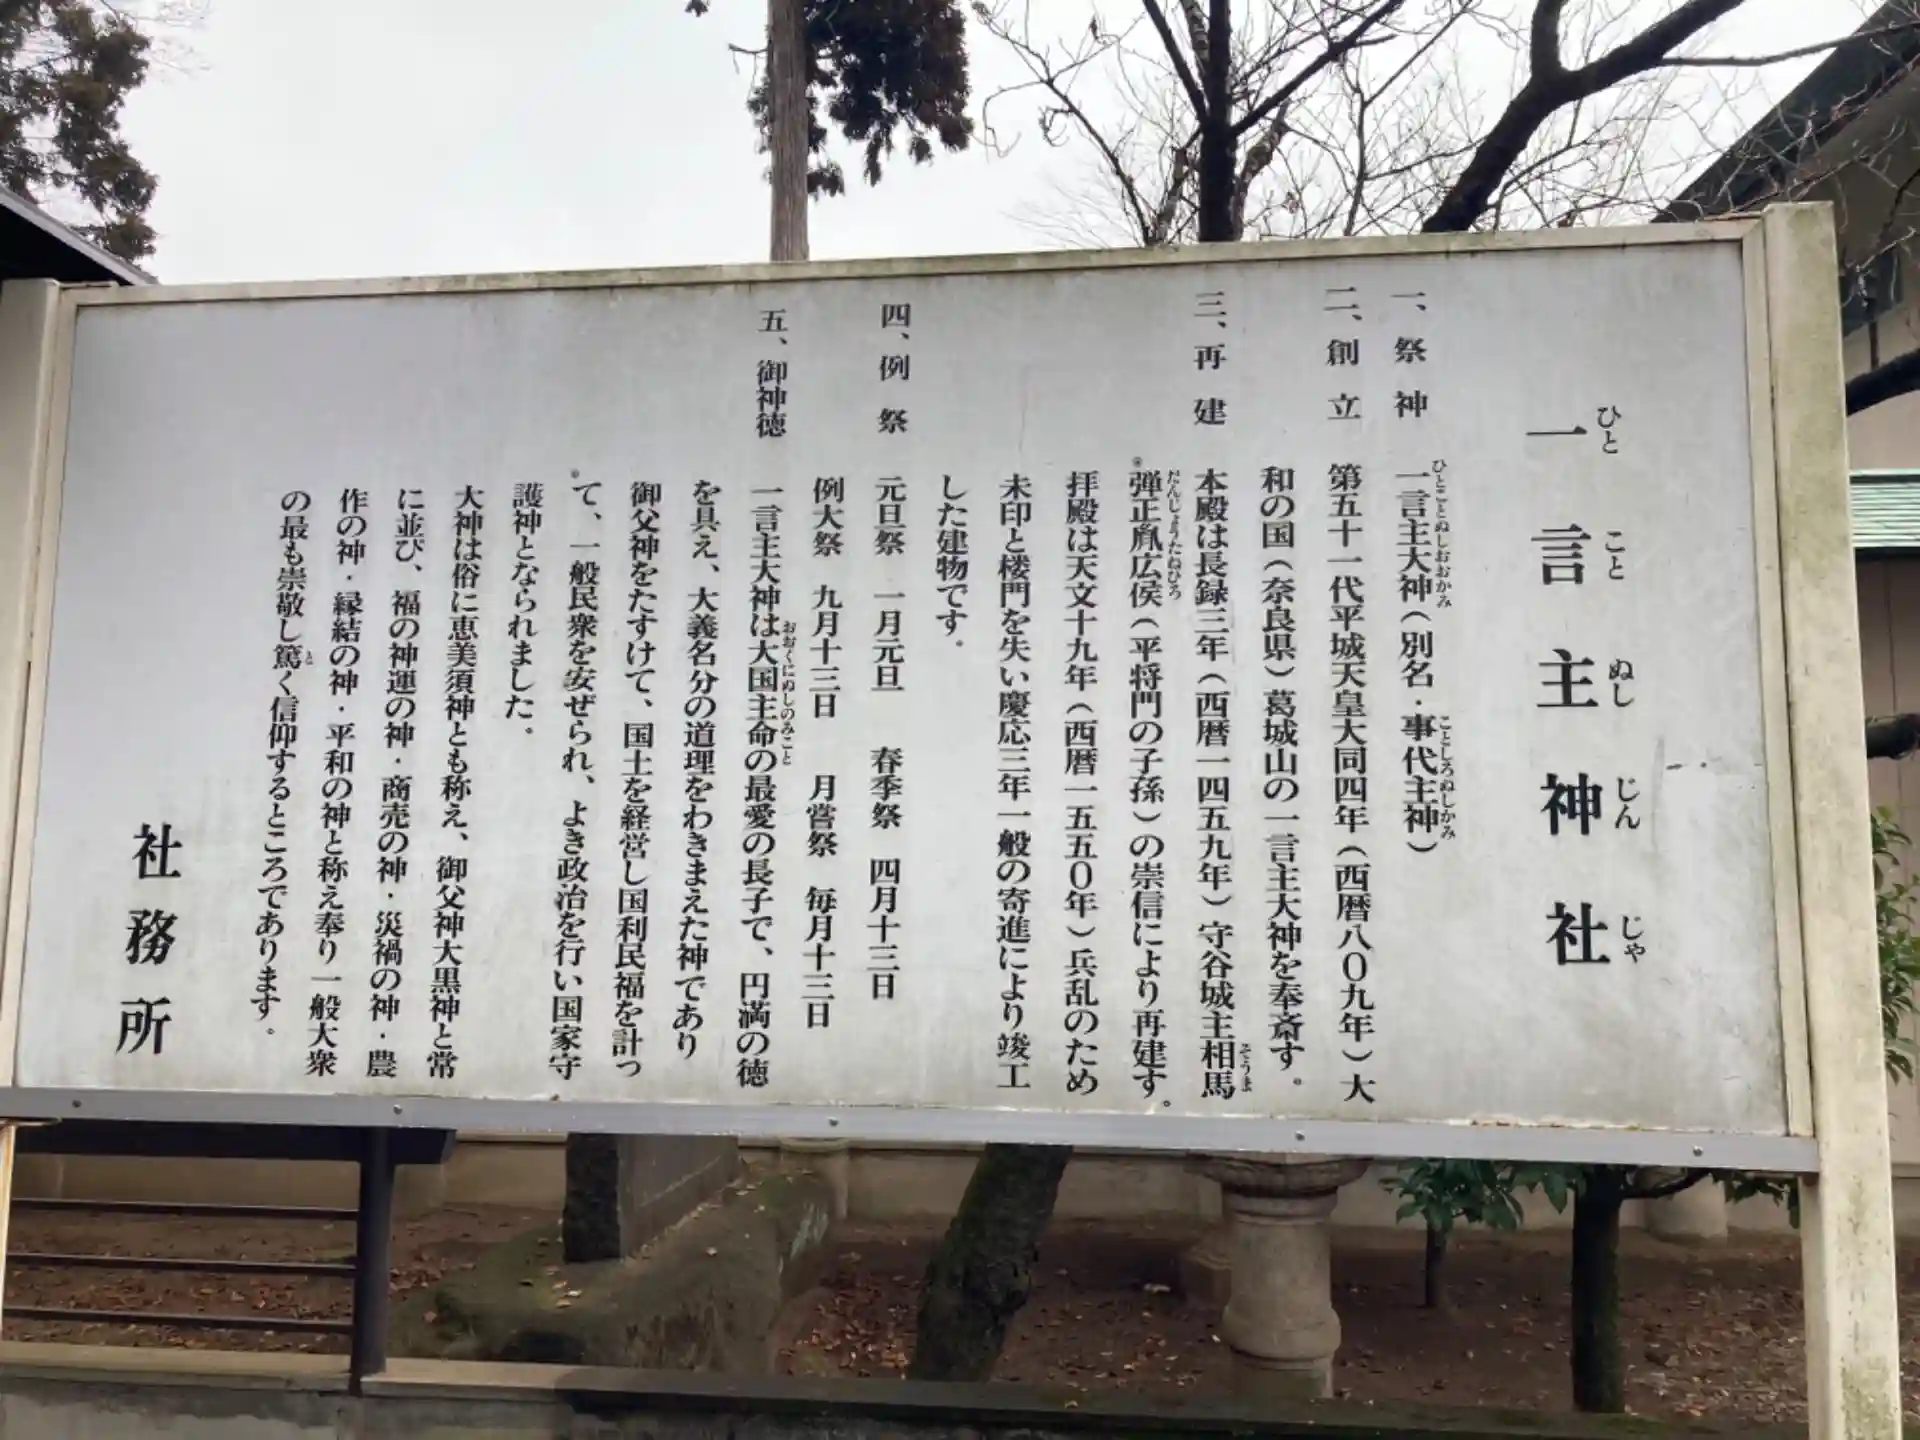 一言主神社
ひとことぬしじんじゃ
一、祭神　一言主大神（別名・事代主神）
ひとことぬしおおかみ　ことしろぬしかみ
二、創立　第五十一代平城天皇大同四年（西暦八〇九年）大
和の国（奈良県）葛城山の一言主大神を奉斎す。
三、再建　本殿は長録三年（西暦一四五九年）守谷城主相馬
そうま
弾正胤広侯（平将門の子孫）の崇信により再建す。
だんじょうたねひろ
拝殿は天文十九年（西暦一五五〇年）兵乱のため
未印と楼門を失い慶応三年一般の寄進により竣工
した建物です。
四、例祭　元旦祭　一月元旦　春季祭　四月十三日
例大祭　九月十三日　月嘗祭　毎月十三日
五、御神徳　一言主大神は大国主命の最愛の長子で、円満の徳
おおくにぬしのみこと
を具え、大義名分の道理をわきまえた神であり
御父神をたすけて、国土を経営し国利民福を計っ
て、一般民衆を安ぜられ、よき政治を行い国家守
護神となられました。
大神は俗に恵美須神とも称え、御父神大黒神と常
に並び、福の神運の神・商売の神・災禍の神・農
作の神・縁結の神・平和の神と称え奉り一般大衆
の最も崇敬し篤く信仰するところであります。
と
社務所